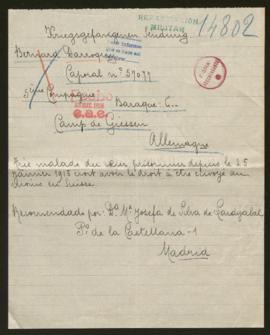 Kriegsgefangenen Sendung
REPATRIACIÓN
MILITAR
14802
Bernard
Caporal nº 59077
5ème Compagnie
Baraque 6.
Camp de Giessen
Allemagne
Très malade du prisonnier depuis le 25
janvier 1915 croit avoir le droit à être envoyé au
moins en Suisse.
Recomendado por: Dª Mª Josefa de Silva de
Pº de la Castellana-1
Madrid